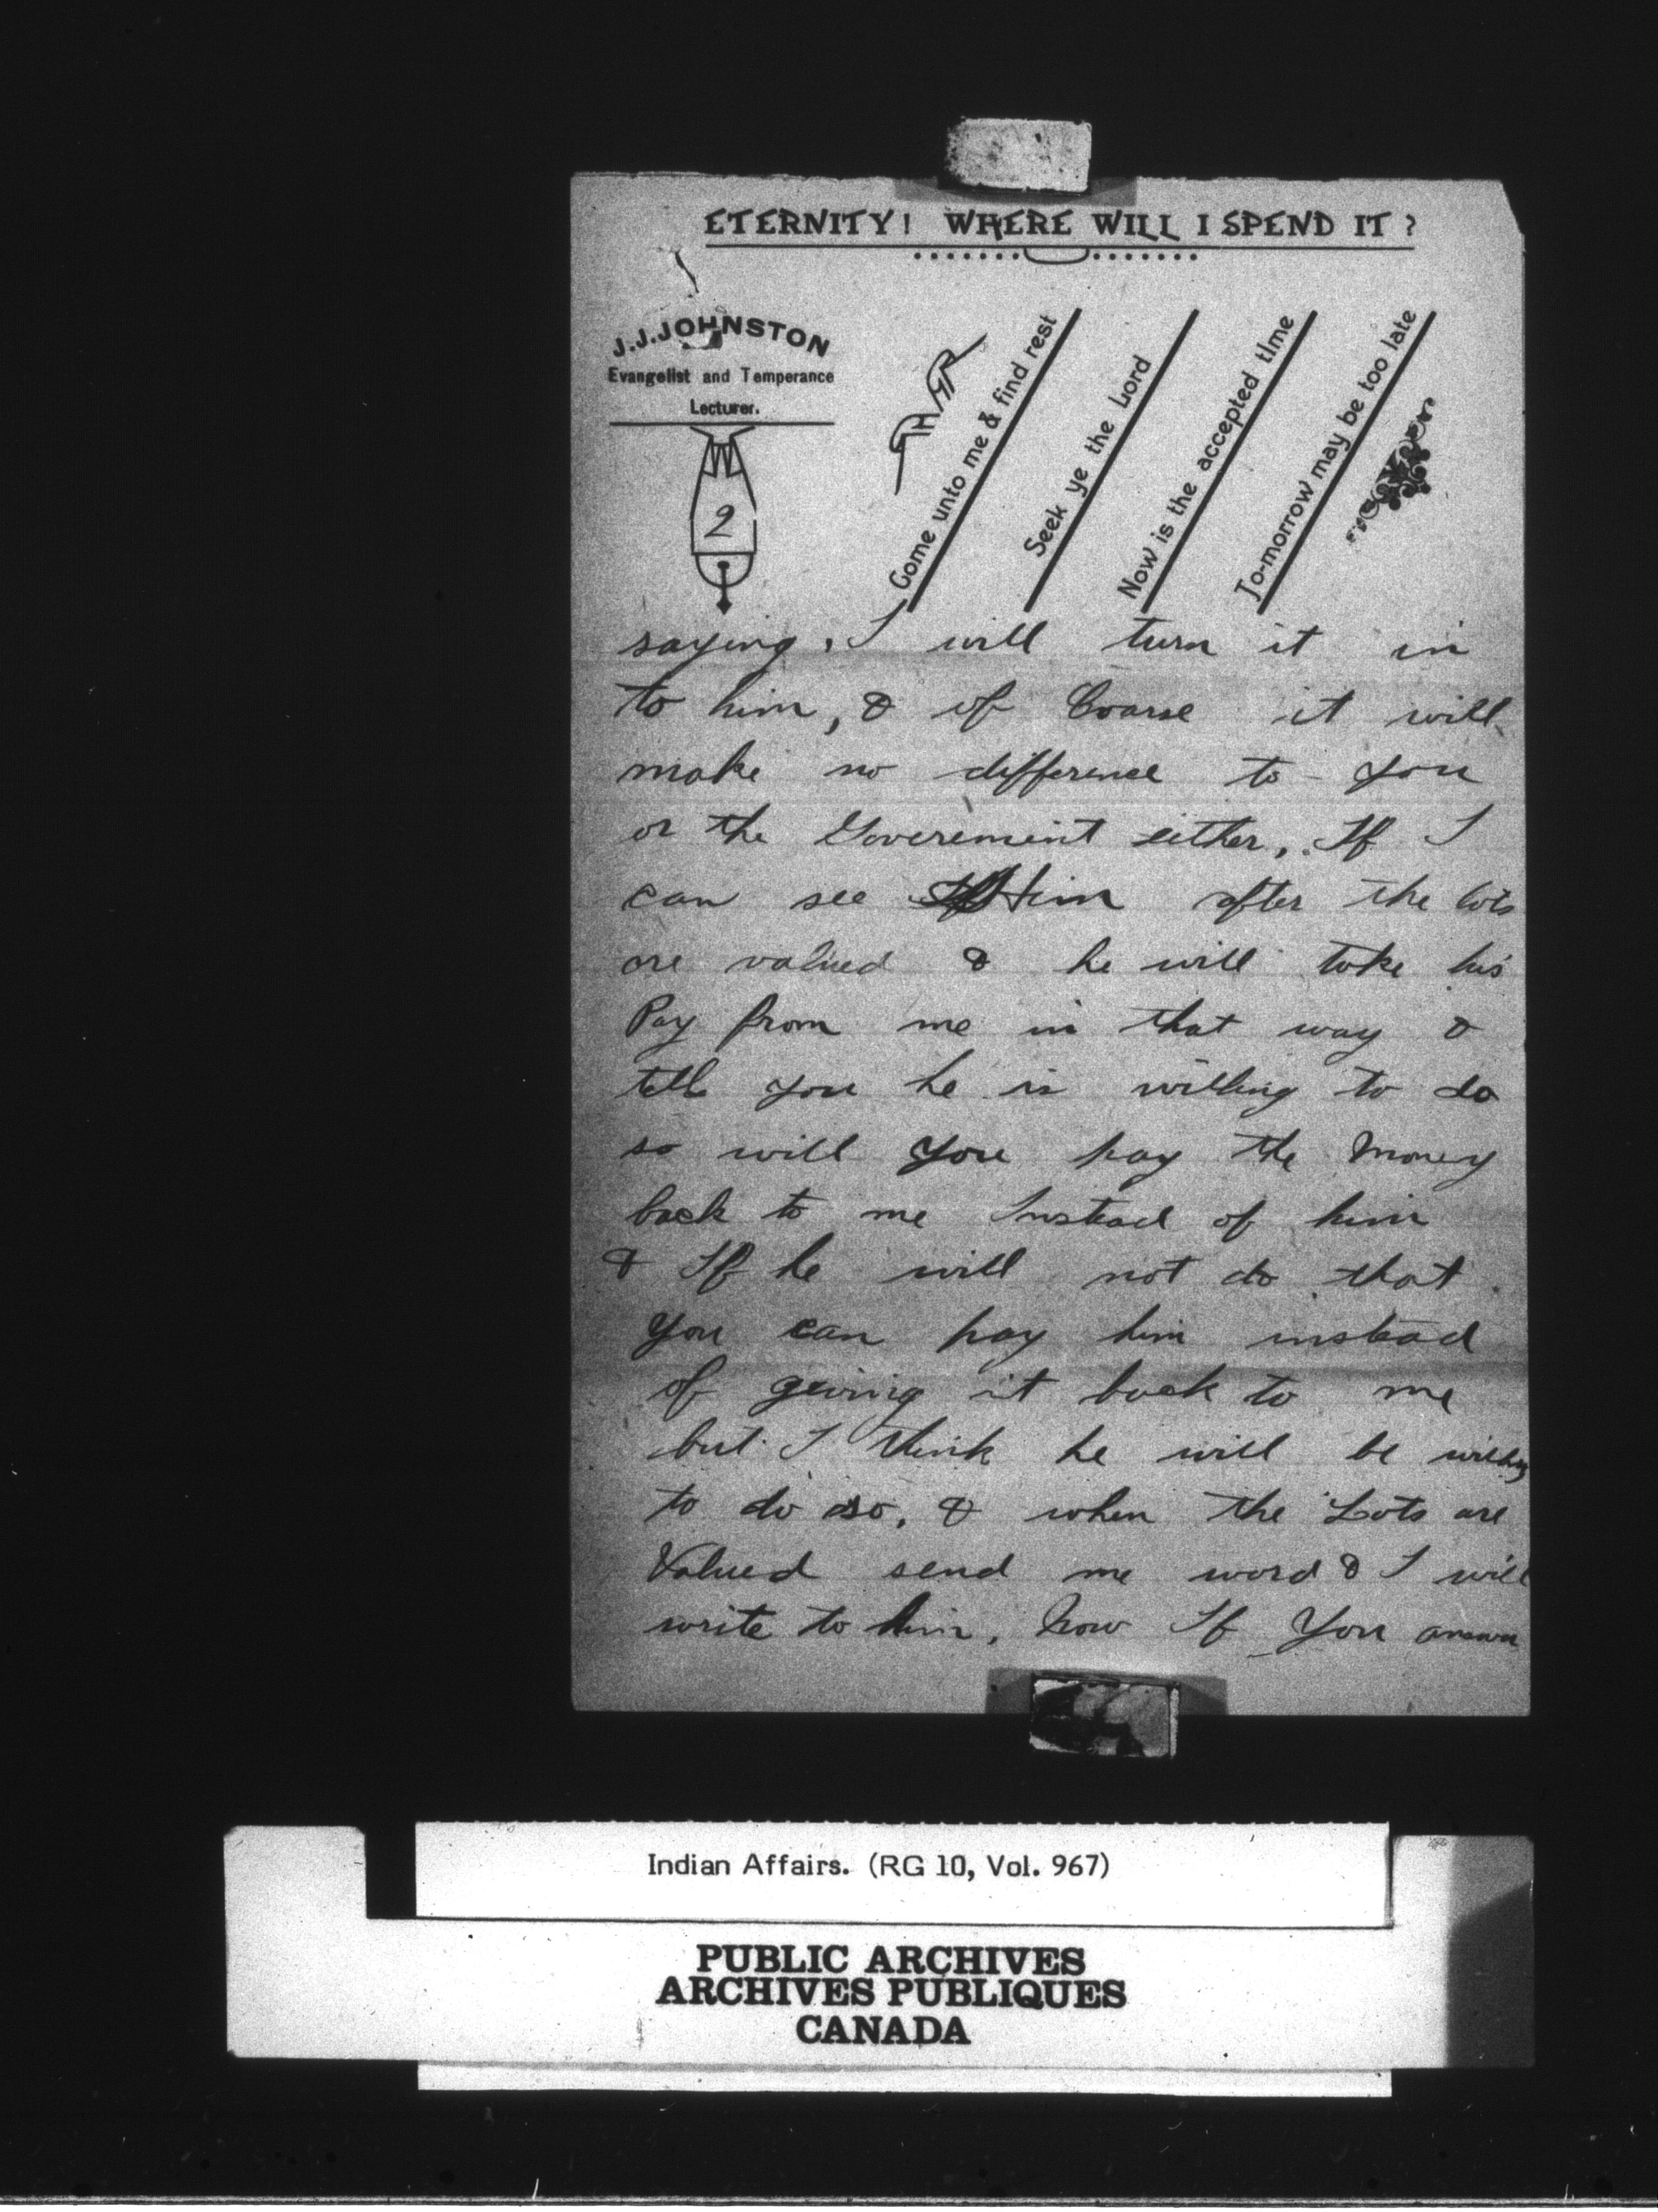 ETERNITY! WHERE WILL I SPEND IT?
J.J. JOHNSTON
Evangelist and Temperance
Lecturer.
2
Come unto me & find rest
Seek ye the Lord
Now is the accepted time
To-morrow may be too late
saying, I will turn it in
to him, & of Coarse it will
make no difference to you
or the Goverement either, If I
can see him after the lots
are valued & he will take his
Pay from me in that way &
tell you he is willing to do
so will you pay the Money
back to me Instead of him
& If he will not do that
you can pay him instead
of geving it back to me
but I think he will be willing
to do so, & when the Lots are
Valued send me word & I will
write to him, Now If You answer
Indian Affairs. (RG 10, Vol. 967)
PUBLIC ARCHIVES
ARCHIVES PUBLIQUES
CANADA